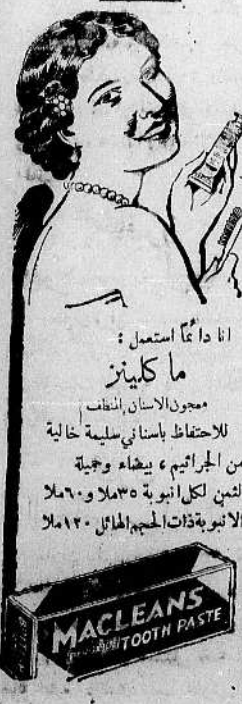 انا دائماً استعمل :
ما كلينز
معجون الاسنان المنظف
للاحتفاظ باسناني سليمة خالية
من الجراثيم ، بيضاء وجميلة
الثمن لكل انبوبة ٣٥ ملا و ٦٠ ملا
الانبوبة ذات الحجم الهائل ١٢٠ ملا
MACLEANS
TOOTH PASTE